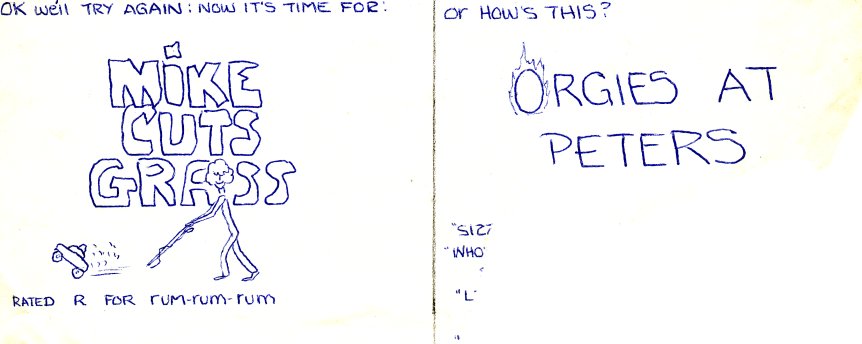 OK we'll TRY AGAIN: NOW IT'S TIME FOR:
MIKE
CUTS
GRASS
RATED R FOR rum-rum-rum
Or HOW'S THIS?
ORGIES AT
PETERS